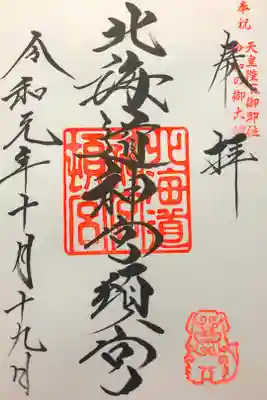 奉祝
天皇陛下御即位
令和の御大
奉拝
北海道神宮頓宮
北海道
神宮
頓宮
令和元年十月十九日